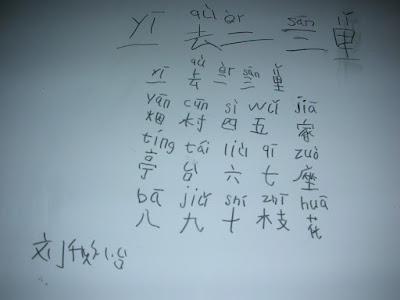 yī qù èr sān lǐ
一 去 二 三 里
yī qù èr sān lǐ
一 去 二 三 里
yān cūn sì wǔ jiā
烟 村 四 五 家
tíng tái liù qī zuò
亭 台 六 七 座
bā jiǔ shí zhī huā
八 九 十 枝 花
刘